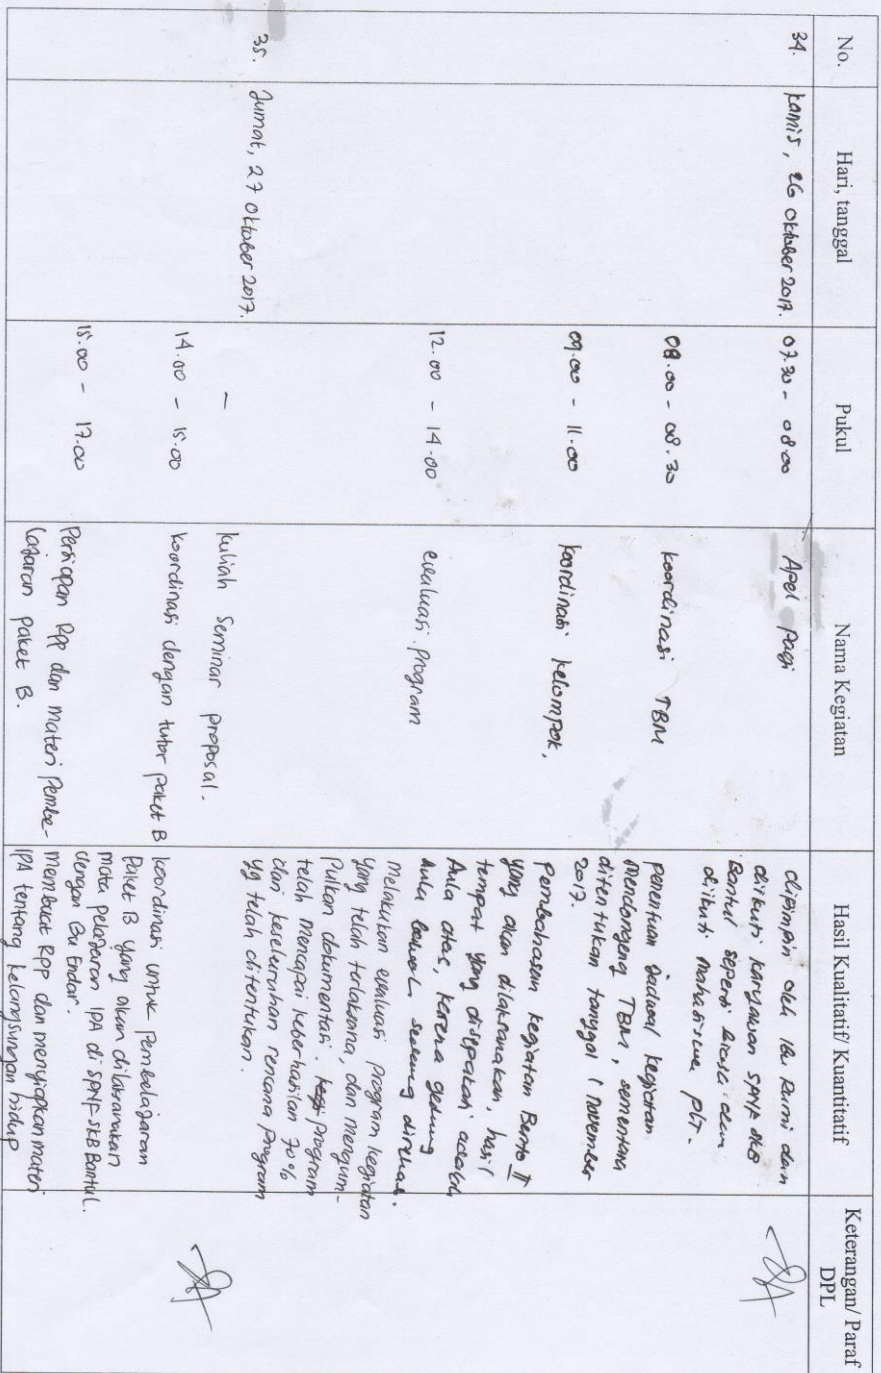 No. Hari, tanggal Pukul Nama Kegiatan Hasil Kualitatif/ Kuantitatif Keterangan/ Paraf
DPL
34. Kamis, 26 Oktober 2017. 07.30 - 08.00 Apel Pagi dipimpin oleh Ibu Rumi dan
diikuti karyawan SPNF SKB
Bantul seperti biasa dan
diikuti mahasiswa PLT.
08.00 - 08.30 koordinasi TBM penentuan jadwal kegiatan
Mendongeng TBM, sementara
ditentukan tanggal 1 November
2017.
09.00 - 11.00 koordinasi kelompok. Pembahasan kegiatan II
yang akan dilaksanakan, hasil
tempat yang disepakati adalah
Aula atas, karena gedung
Aula sedang direhab.
12.00 - 14.00 evaluasi program melakukan evaluasi program kegiatan
yang telah terlaksana, dan mengum-
pulkan dokumentasi. program
telah mencapai keberhasilan 70%
dari keseluruhan rencana program
yg telah ditentukan.
35. Jumat, 27 Oktober 2017. - kuliah Seminar proposal.
14.00 - 15.00 koordinasi dengan tutor paket B koordinasi untuk pembelajaran
Paket B yang akan dilaksanakan
mata pelajaran IPA di SPNF SKB Bantul.
dengan Bu Endar.
15.00 - 17.00 Persiapan Rpp dan materi Pembe-
lajaran paket B. membuat Rpp dan menyiapkan materi
IPA tentang kelangsungan hidup